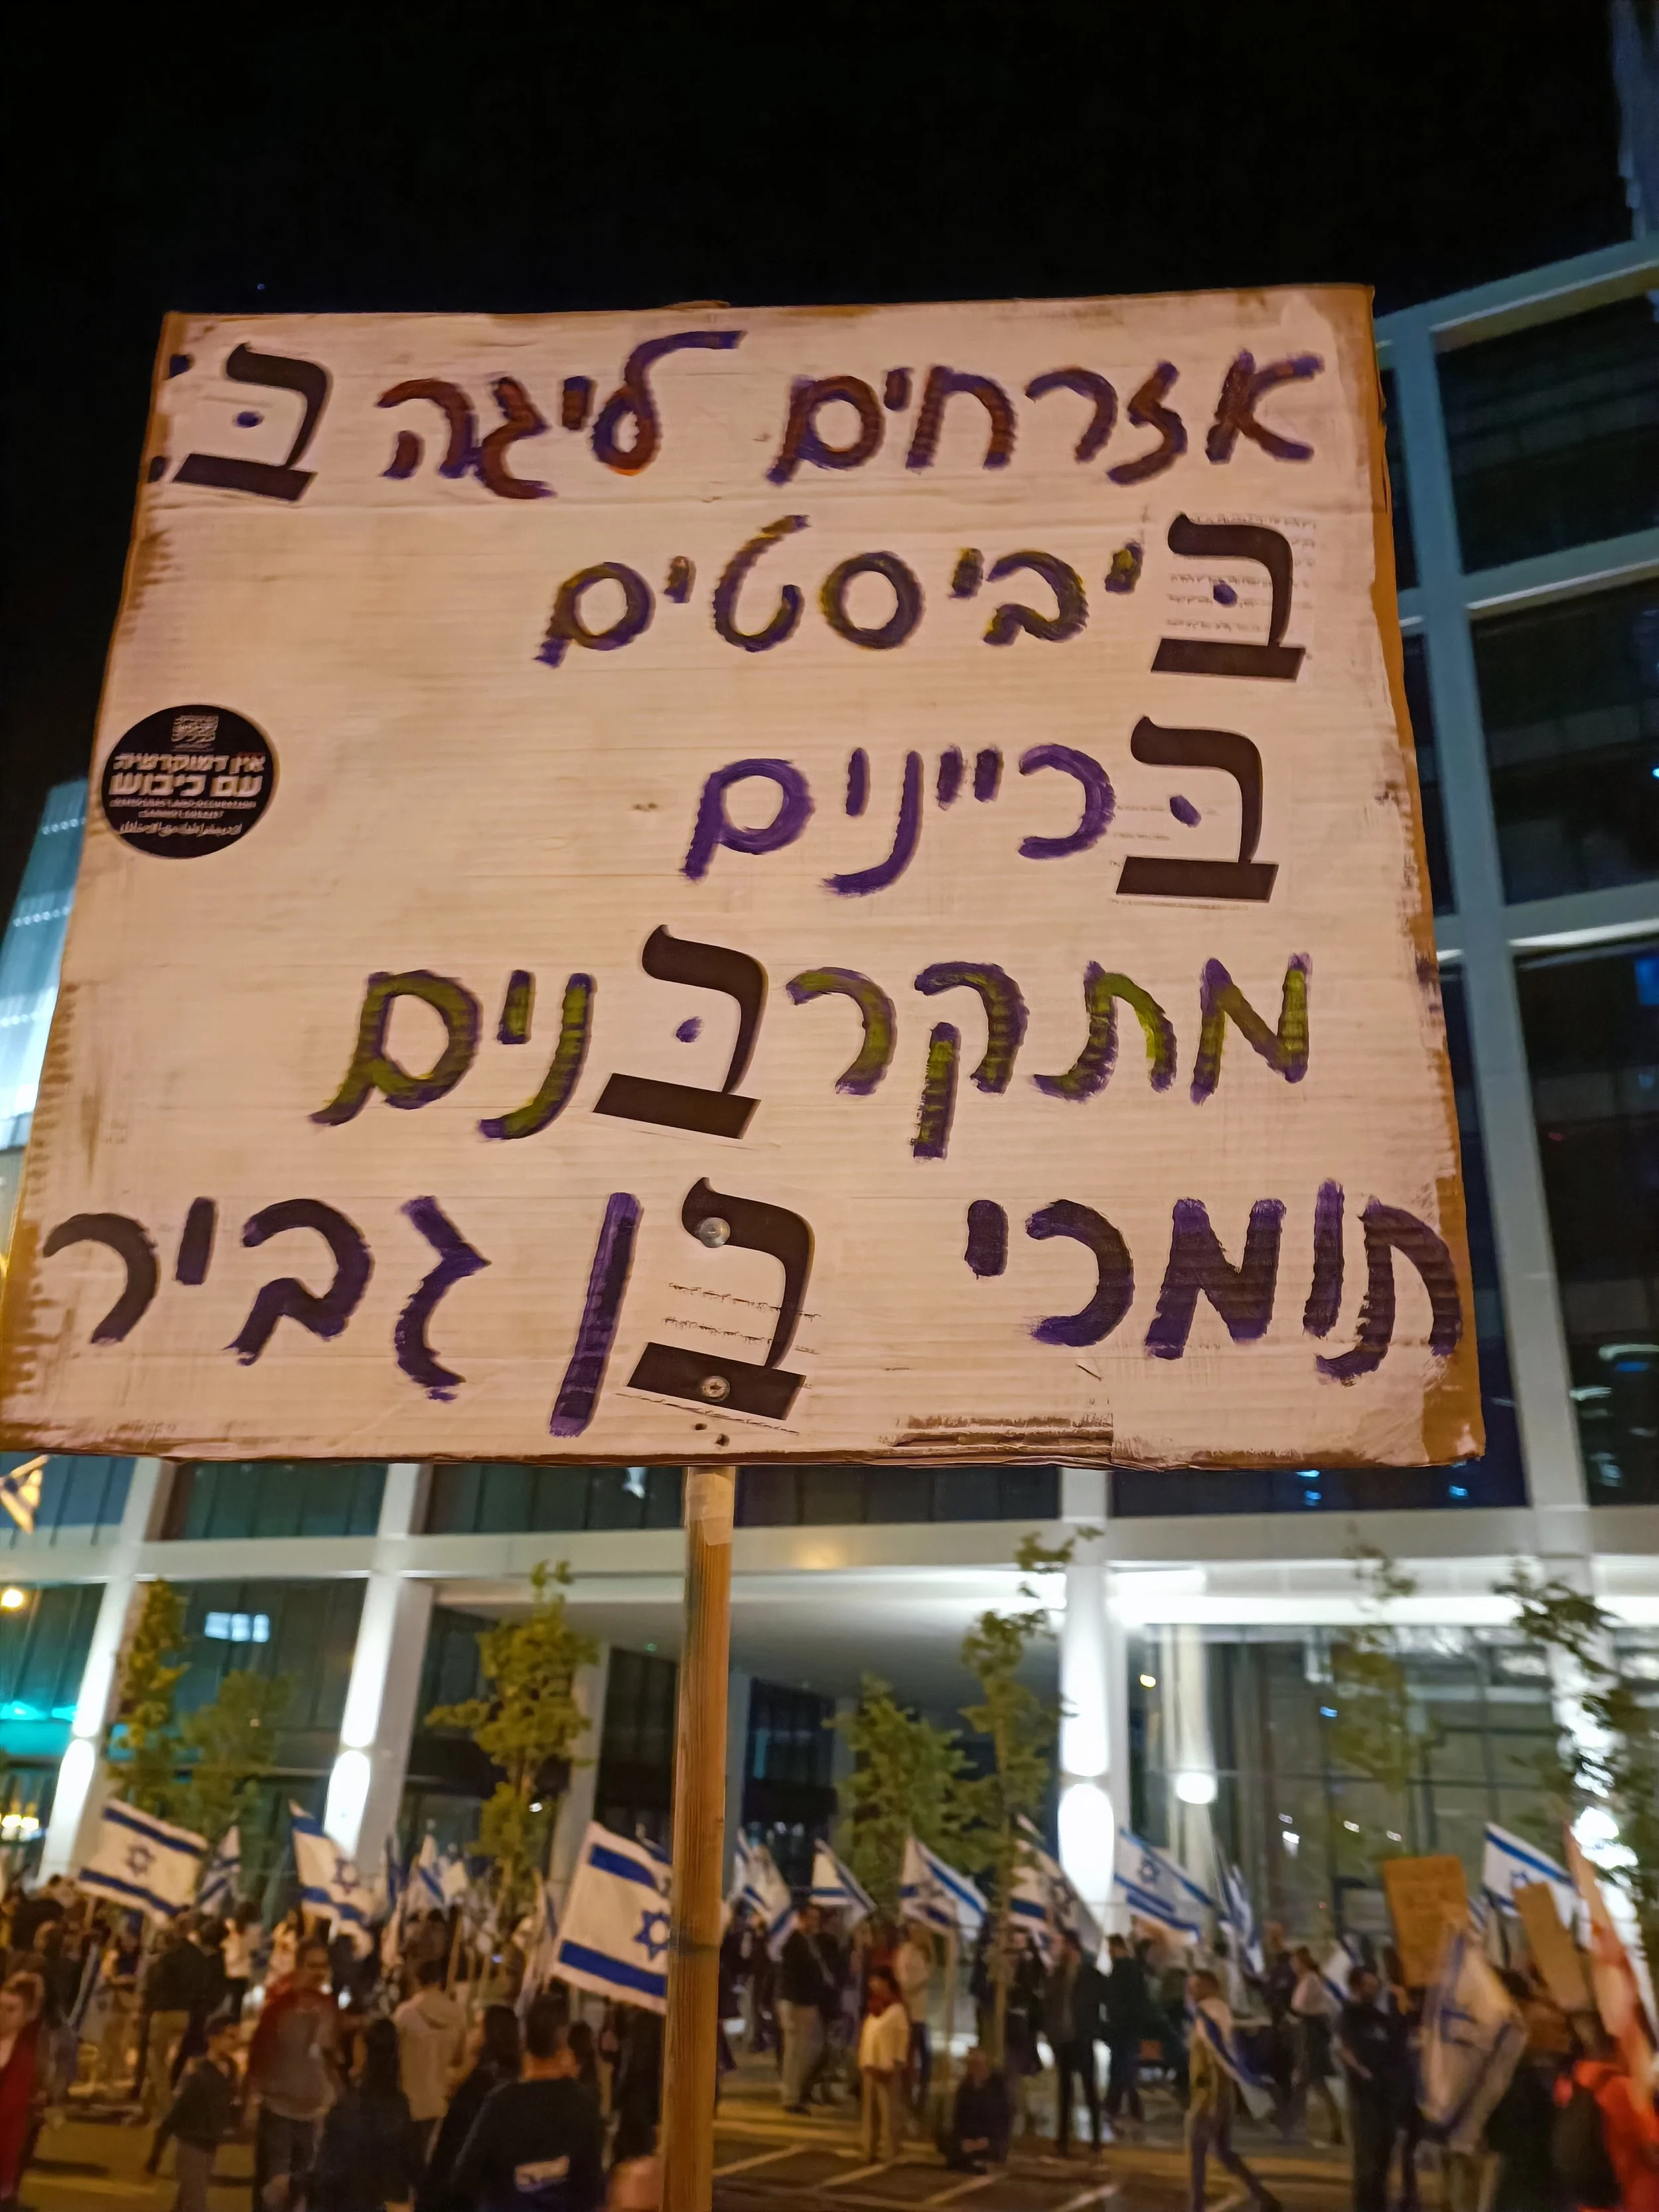 אזרחים ליגה בּ':
בּיביסטים
בּכיינים
מתקרבּנים
תומכי בן גביר
אין דמוקרטיה
עם כיבוש
DEMOCRACY AND OCCUPATION
CANNOT COEXIST
لا ديمقراطية مع الاحتلال